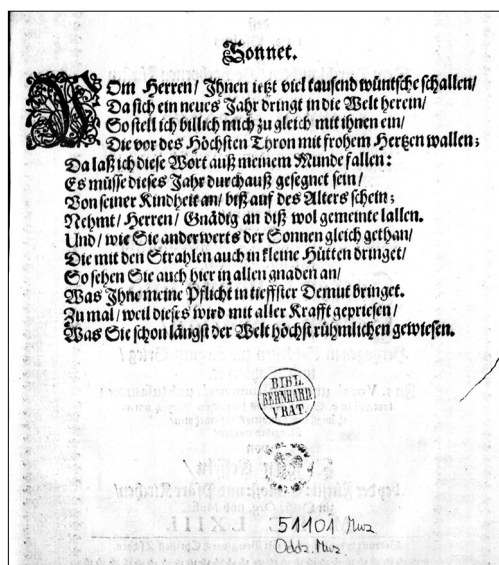 Sonnet.
Om Herren/ Ihnen itzt viel tausend wüntsche schallen/
Da sich ein neues Jahr dringt in die Welt herein/
So stell ich billich mich zu gleich mit ihnen ein/
Die vor des Höchsten Thron mit frohem Hertzen wallen;
Da laß ich diese Wort auß meinem Munde fallen:
Es müsse dieses Jahr durchauß gesegnet sein/
Von seiner Kindheit an/ biß auf des Alters schein;
Nehmt/ Herren/ Gnädig an diß wol gemeinte lallen.
Und/ wie Sie anderwerts der Sonnen gleich gethan/
Die mit den Strahlen auch in kleine Hütten dringet/
So sehen Sie auch hier in allen gnaden an/
Was Ihne meine Pflicht in tieffster Demut bringet.
Zu mal/ weil dieses wird mit aller Krafft gepriesen/
Was Sie schon längst der Welt höchst rühmlichen gewiesen.
BIBL.
BERNHARD.
VRAT.
51101 Muz